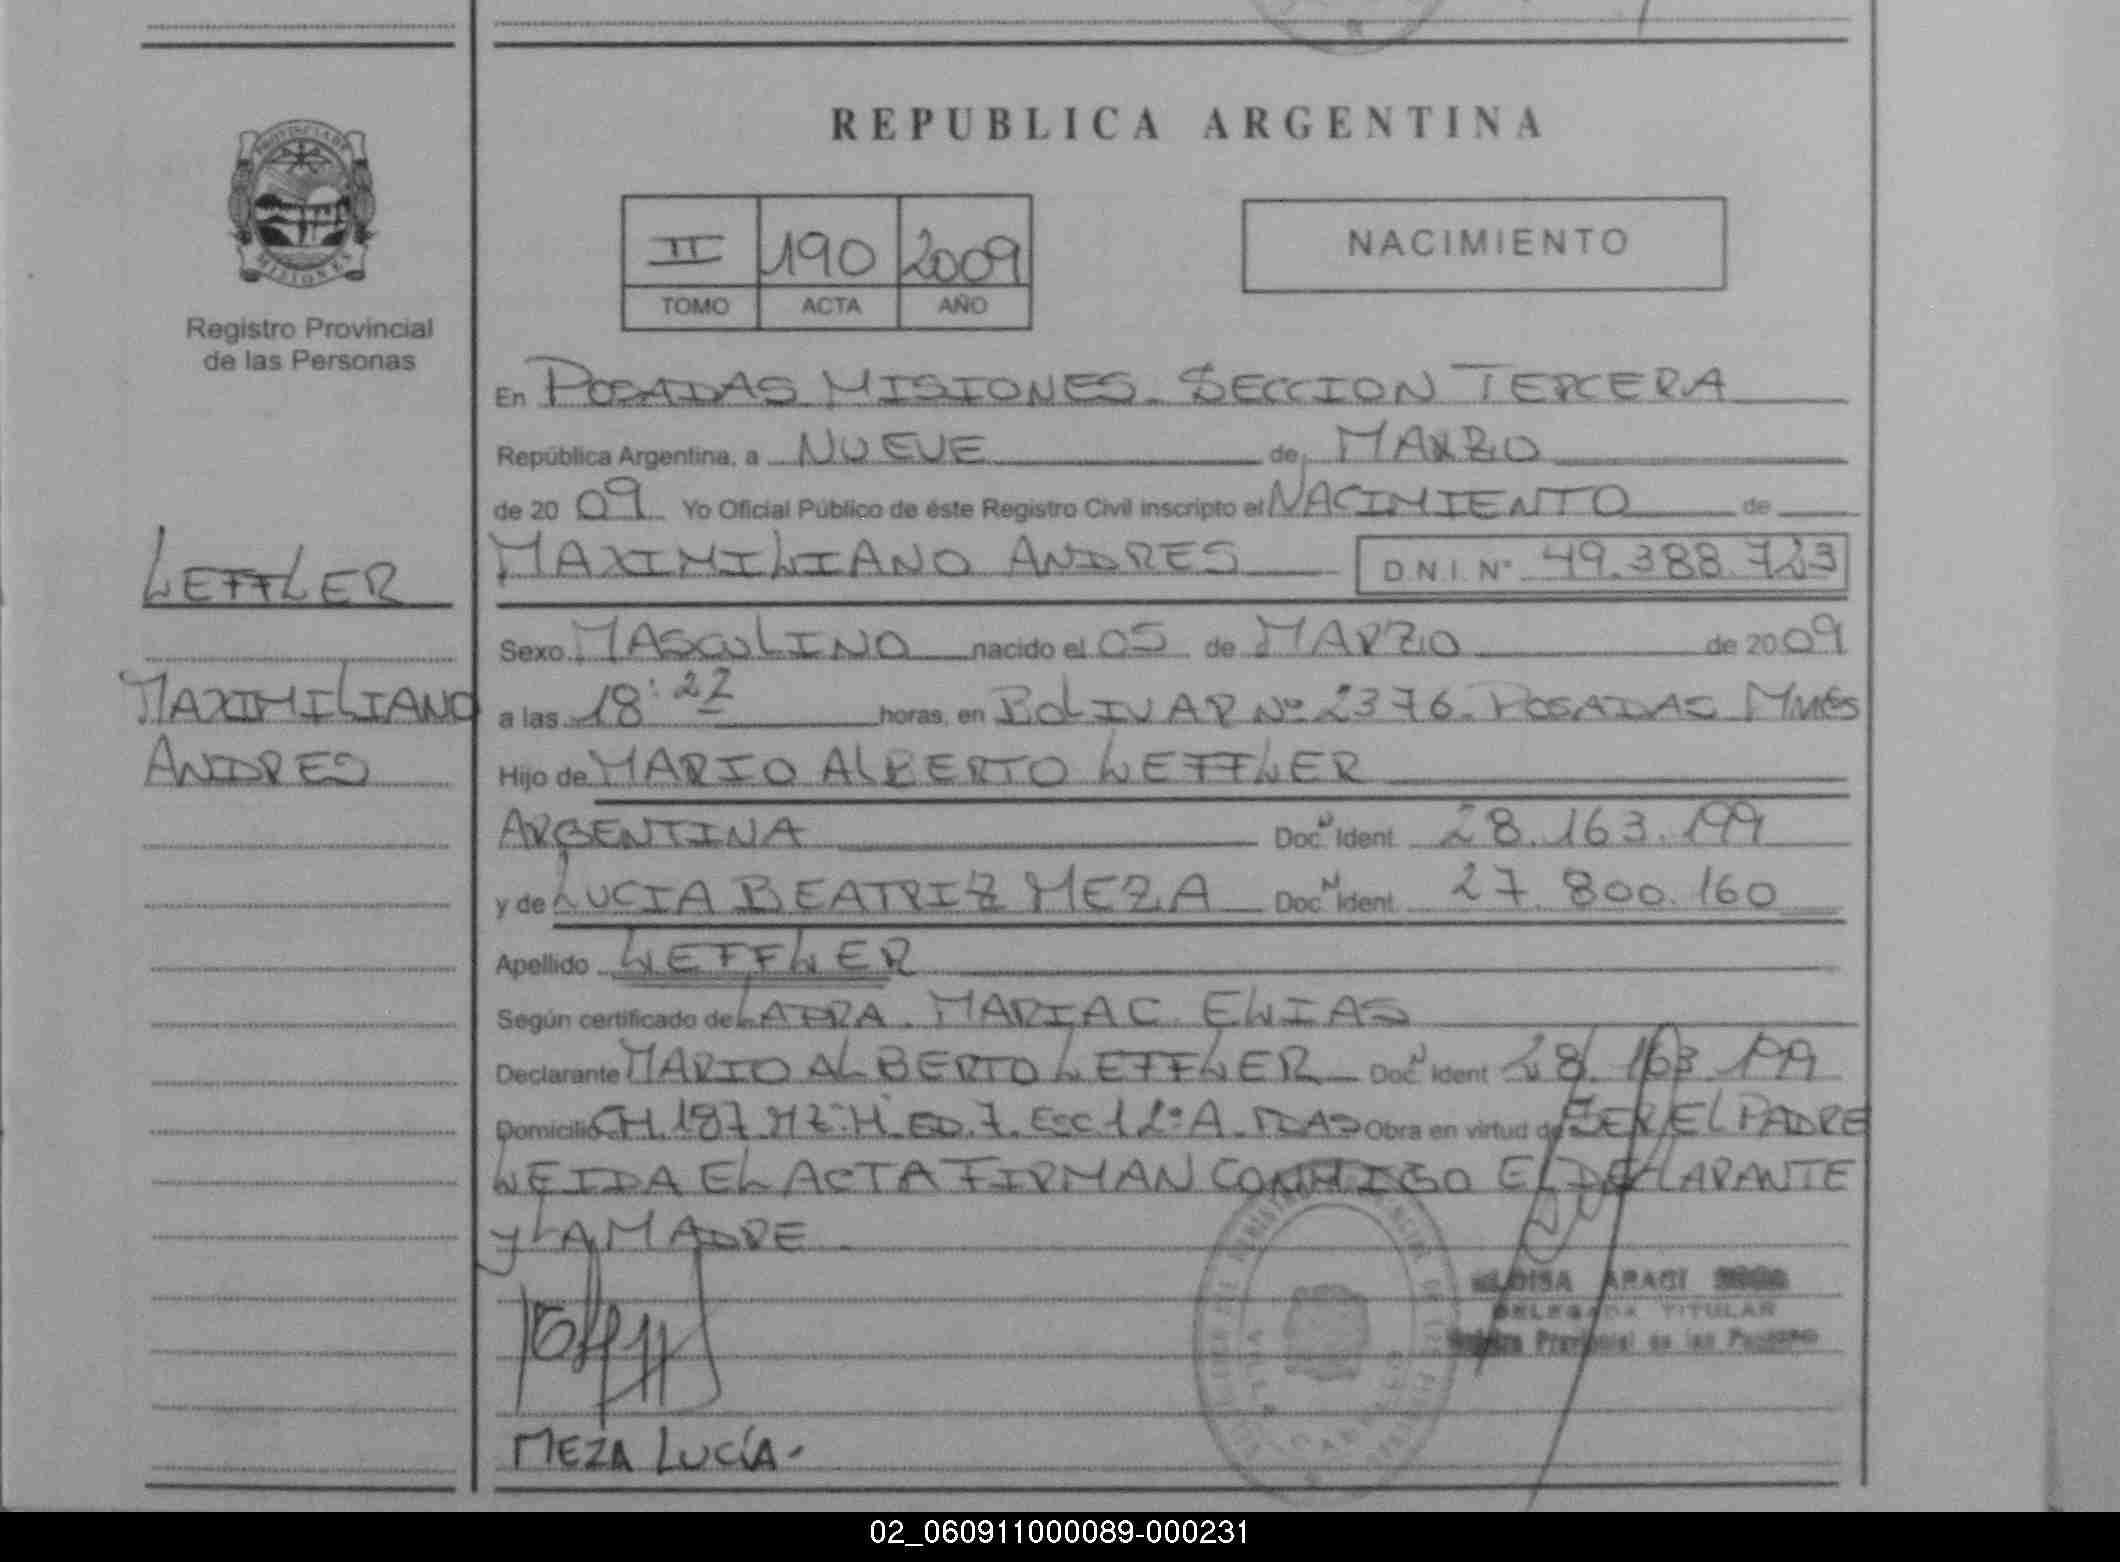 REPUBLICA ARGENTINA
PROVINCIA DE
MISIONES
Registro Provincial
de las Personas
II 190 2009
TOMO ACTA AÑO
NACIMIENTO
LEFFLER
MAXIMILIANO
ANDRES
En POSADAS MISIONES. SECCION TERCERA
República Argentina, a NUEVE de MARZO
de 20 09 Yo Oficial Público de éste Registro Civil inscripto el NACIMIENTO de
MAXIMILIANO ANDRES D.N.I. Nº 49.388.723
Sexo MASCULINO nacido el 05 de MARZO de 20 09
a las 18:22 horas, en BOLIVAR Nº 2376. POSADAS Mnes
Hijo de MARIO ALBERTO LEFFLER
ARGENTINA Doc. Ident. 28.163.199
y de LUCIA BEATRIZ MEZA Doc. Ident. 27.800.160
Apellido LEFFLER
Según certificado de LA DRA. MARIA C. ELIAS
Declarante MARIO ALBERTO LEFFLER Doc. Ident 28.163.199
Domicilio CH.187.MZ:H.ED.7.ESC 1 2º A. PDAS Obra en virtud de SER EL PADRE
LEIDA EL ACTA FIRMAN CONMIGO EL DECLARANTE
y LA MADRE
DELEGADA TITULAR
Registro Provincial de las Personas
MEZA LUCÍA.
02_060911000089-000231